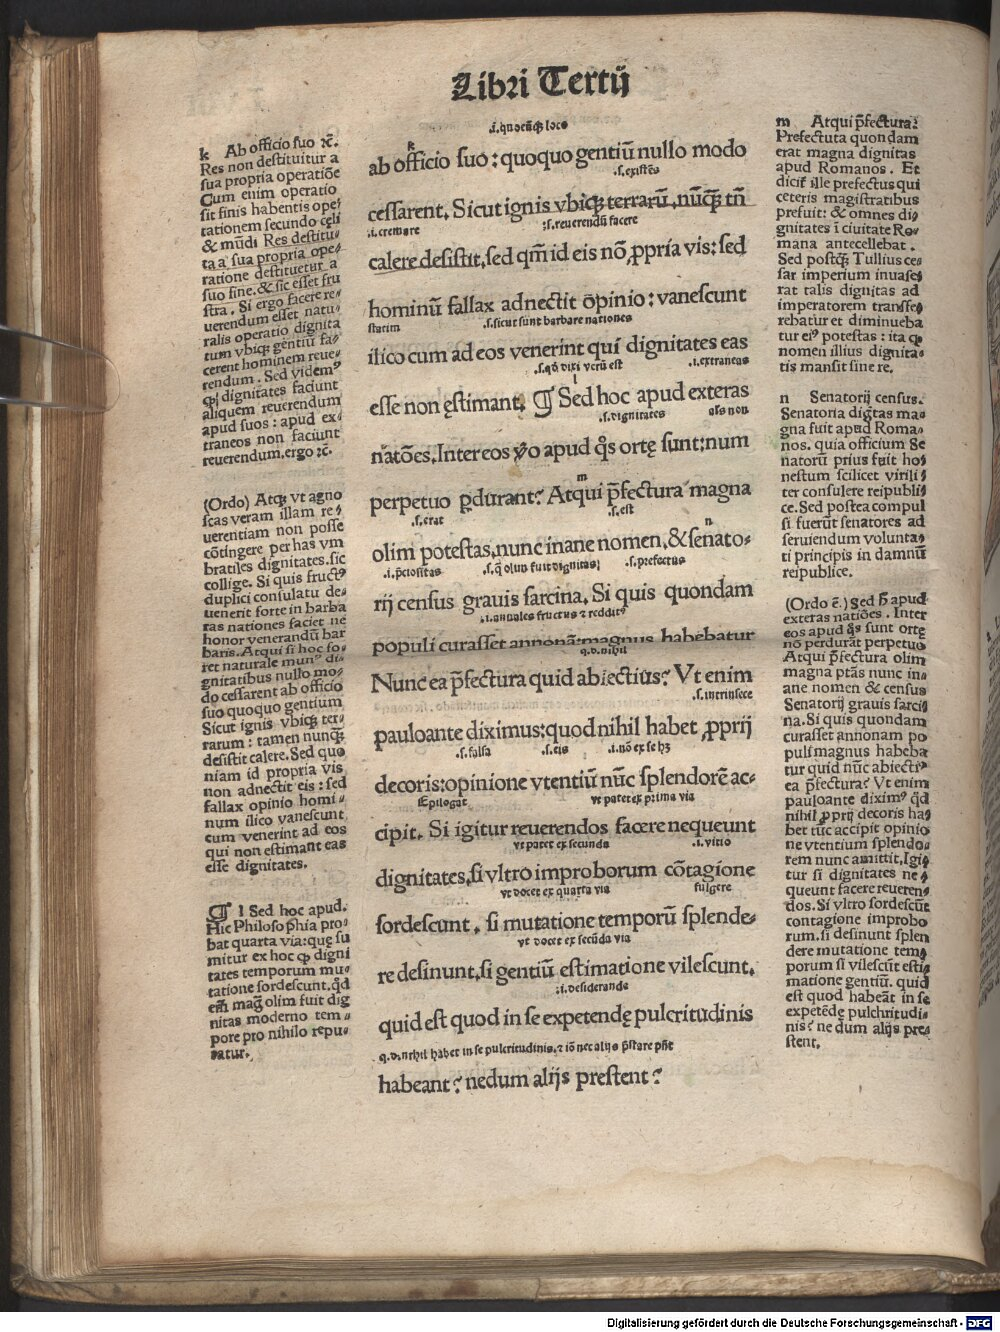 Libri Tertij
k Ab officio suo ⁊c̄.
Res non destituitur a
sua propria operatiōe
Cum enim operatio
sit finis habentis ope⸗
rationem secundo cęli
& mūdi Res destitu⸗
ta a sua propria ope⸗
ratione destituetur a
suo fine. & sic esset fru
stra. Si ergo facere re⸗
uerendum esset natu⸗
ralis operatio dignita
tum vbiqꝫ gentiū fa⸗
cerent hominem reue⸗
rendum. Sed videmꝰ
ꝙ dignitates faciunt
aliquem reuerendum
apud suos: apud ex⸗
traneos non faciunt
reuerendum. ergo ⁊c̄.
(Ordo) Atqꝫ vt agno
scas veram illam re⸗
uerentiam non posse
cōtingere per has vm
bratiles dignitates. sic
collige. Si quis fructꝰ
duplici consulatu de⸗
uenerit forte in barba
ras nationes faciet ne
honor venerandū bar
baris. Atqui si hoc fo⸗
ret naturale munꝰ di⸗
gnitatibus nullo mo⸗
do cessarent ab officio
suo quoquo gentium
Sicut ignis vbiqꝫ ter⸗
rarum: tamen nunqꝫ̄
desistit calere. Sed quo
niam id propria vis
non adnectit eis: sed
fallax opinio homi⸗
num ilico vanescunt
cum venerint ad eos
qui non estimant eas
esse dignitates.
¶ l Sed hoc apud.
Hic Philosophia pro⸗
bat quarta via: quę su
mitur ex hoc ꝙ digni
tates temporum mu⸗
tatione sordescunt. qd̄
em̄ mag olim fuit dig
nitas moderno tem⸗
pore pro nihilo repu⸗
tatur.
.i. quocūqꝫ loco
k
ab officio suo: quoquo gentiū nullo modo
.s. existēs
cessarent. Sicut ignis vbiqꝫ terrarū. nūqꝫ̄ tn̄
.i. cremare .s. reuerendū facere
calere desistit. sed qm̄ id eis nō ꝓpria vis: sed
hominū fallax adnectit opinio: vanescunt
statim .s. sicut sunt barbare nationes
ilico cum ad eos venerint qui dignitates eas
.s. qd̄ dixi verū est .i. extraneas
l
esse non ęstimant. ¶ Sed hoc apud exteras
.s. dignitates als non
natōes. Inter eos ꝟo apud qͦs ortę sunt: num
m
perpetuo ꝑdurant? Atqui p̄fectura magna
.s. erat .s. est
n
olim potestas, nunc inane nomen, & senato⸗
.i. p̄ciositas .s. q̄ olim fuit dignitas .s. prefectus
rij census grauis sarcina. Si quis quondam
.i. annales fructus & redditꝰ
populi curasset annonā: magnus habebatur
q.d. nihil
Nunc ea p̄fectura quid abiectius? Vt enim
.s. intrinsece
pauloante diximus: quod nihil habet ꝓprij
.s. falsa .s. eis .i. nō ex se hꝫ
decoris: opinione vtentiū nūc splendorē ac⸗
Epilogat vt patet ex prima via
cipit. Si igitur reuerendos facere nequeunt
vt patet ex secunda .i. vitio
dignitates, si vltro improborum cōtagione
vt docet ex quarta via fulgere
sordescunt, si mutatione temporū splende⸗
vt docet ex secūda via
re desinunt, si gentiū estimatione vilescunt.
.i. desiderande
quid est quod in se expetendę pulcritudinis
q.d. nihil habet in se pulcritudinis. ⁊ iō nec alijs p̄stare pn̄t
habeant? nedum alijs prestent?
m Atqui p̄fectura?
Prefectura quondam
erat magna dignitas
apud Romanos. Et
dicit̄ ille prefectus qui
ceteris magistratibus
prefuit: & omnes di⸗
gnitates ī ciuitate Ro⸗
mana antecellebat.
Sed postqꝫ̄ Tullius ce⸗
sar imperium inuase⸗
rat talis dignitas ad
imperatorem transfe⸗
rebatur et diminueba
tur eiꝰ potestas: ita ꝙ
nomen illius dignita⸗
tis mansit sine re.
n Senatorij census.
Senatoria digtas ma⸗
gna fuit apud Roma⸗
nos. quia officium Se
natorū prius fuit ho⸗
nestum scilicet virili⸗
ter consulere reipubli⸗
ce. Sed postea compul
si fuerūt senatores ad
seruiendum volunta⸗
ti principis in damnū
reipublice.
(Ordo ē.) Sed h̄ apud
exteras natiōes. Inter
eos apud qͦs sunt ortę
nō perdurāt perpetuo
Atqui p̄fectura olim
magna ptās nunc in⸗
ane nomen & census
Senatorij grauis sarci⸗
na. Si quis quondam
curasset annonam po
puli magnus habeba
tur quid nūc abiectiꝰ
ea p̄fectura? Vt enim
pauloante diximꝰ qd̄
nihil ꝓprij decoris ha⸗
bet tūc accipit opinio
ne vtentium splendo⸗
rem nunc amittit. Igi⸗
tur si dignitates ne⸗
queunt facere reueren⸗
dos. Si vltro sordescūt
contagione improbo
rum. si desinunt splen
dere mutatione tem⸗
porum si vilescūt esti⸗
matione gentiū. quid
est quod habeāt in se
expetēdę pulchritudi⸗
nis? ne dum alijs pre⸗
stent.
Digitalisierung gefördert durch die Deutsche Forschungsgemeinschaft - DFG